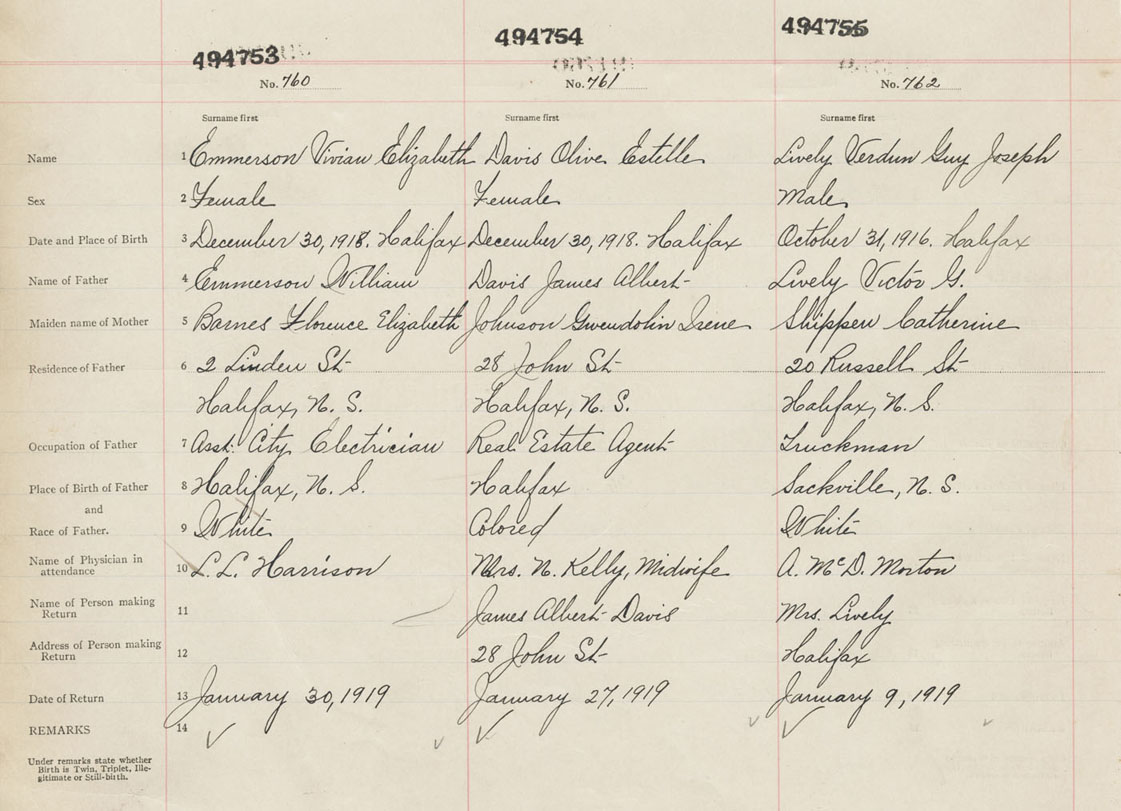 494753
494754
494755
No. 760
No. 761
No. 762
Surname first
Surname first
Surname first
Name 1 Emmerson Vivian Elizabeth Davis Olive Estelle Lively Verdun Guy Joseph
Sex 2 Female Female Male
Date and Place of Birth 3 December 30, 1918. Halifax December 30, 1918. Halifax October 31, 1916. Halifax
Name of Father 4 Emmerson William Davis James Albert Lively Victor G.
Maiden name of Mother 5 Barnes Florence Elizabeth Johnson Gwendolin Irene Shippen Catherine
Residence of Father 6 2 Linden St 28 John St 20 Russell St
Halifax, N. S. Halifax, N. S. Halifax, N. S.
Occupation of Father 7 Asst. City Electrician Real Estate Agent Truckman
Place of Birth of Father 8 Halifax, N. S. Halifax Sackville, N. S.
and
Race of Father. 9 White Colored White
Name of Physician in
attendance 10 L. L. Harrison Mrs. N. Kelly, Midwife A. McD. Morton
Name of Person making
Return 11 James Albert Davis Mrs. Lively
Address of Person making
Return 12 28 John St Halifax
Date of Return 13 January 30, 1919 January 27, 1919 January 9, 1919
REMARKS 14
Under remarks state whether
Birth is Twin, Triplet, Ille-
gitimate or Still-birth.